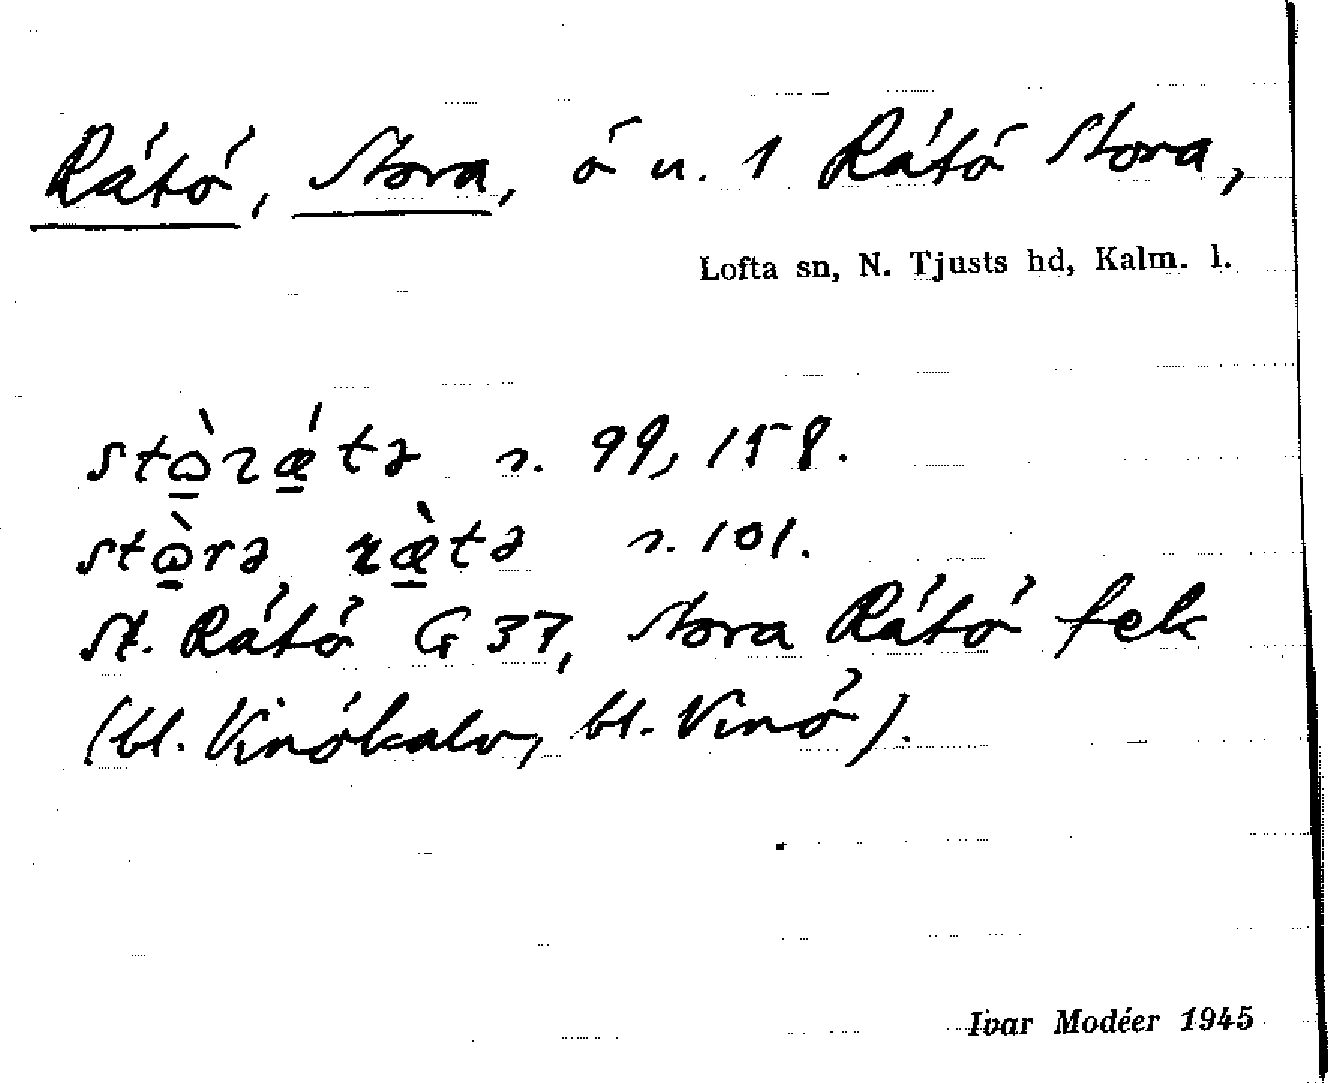 Rätö, Stora, ö u. 1 Rätö Stora,
Lofta sn, N. Tjusts hd, Kalm. l.
s. 99, 158.
s. 101.
St. Rätö G 37, Stora Rätö fek
(bl. Vinökalv, bl. Vinö).
Ivar Modéer 1945